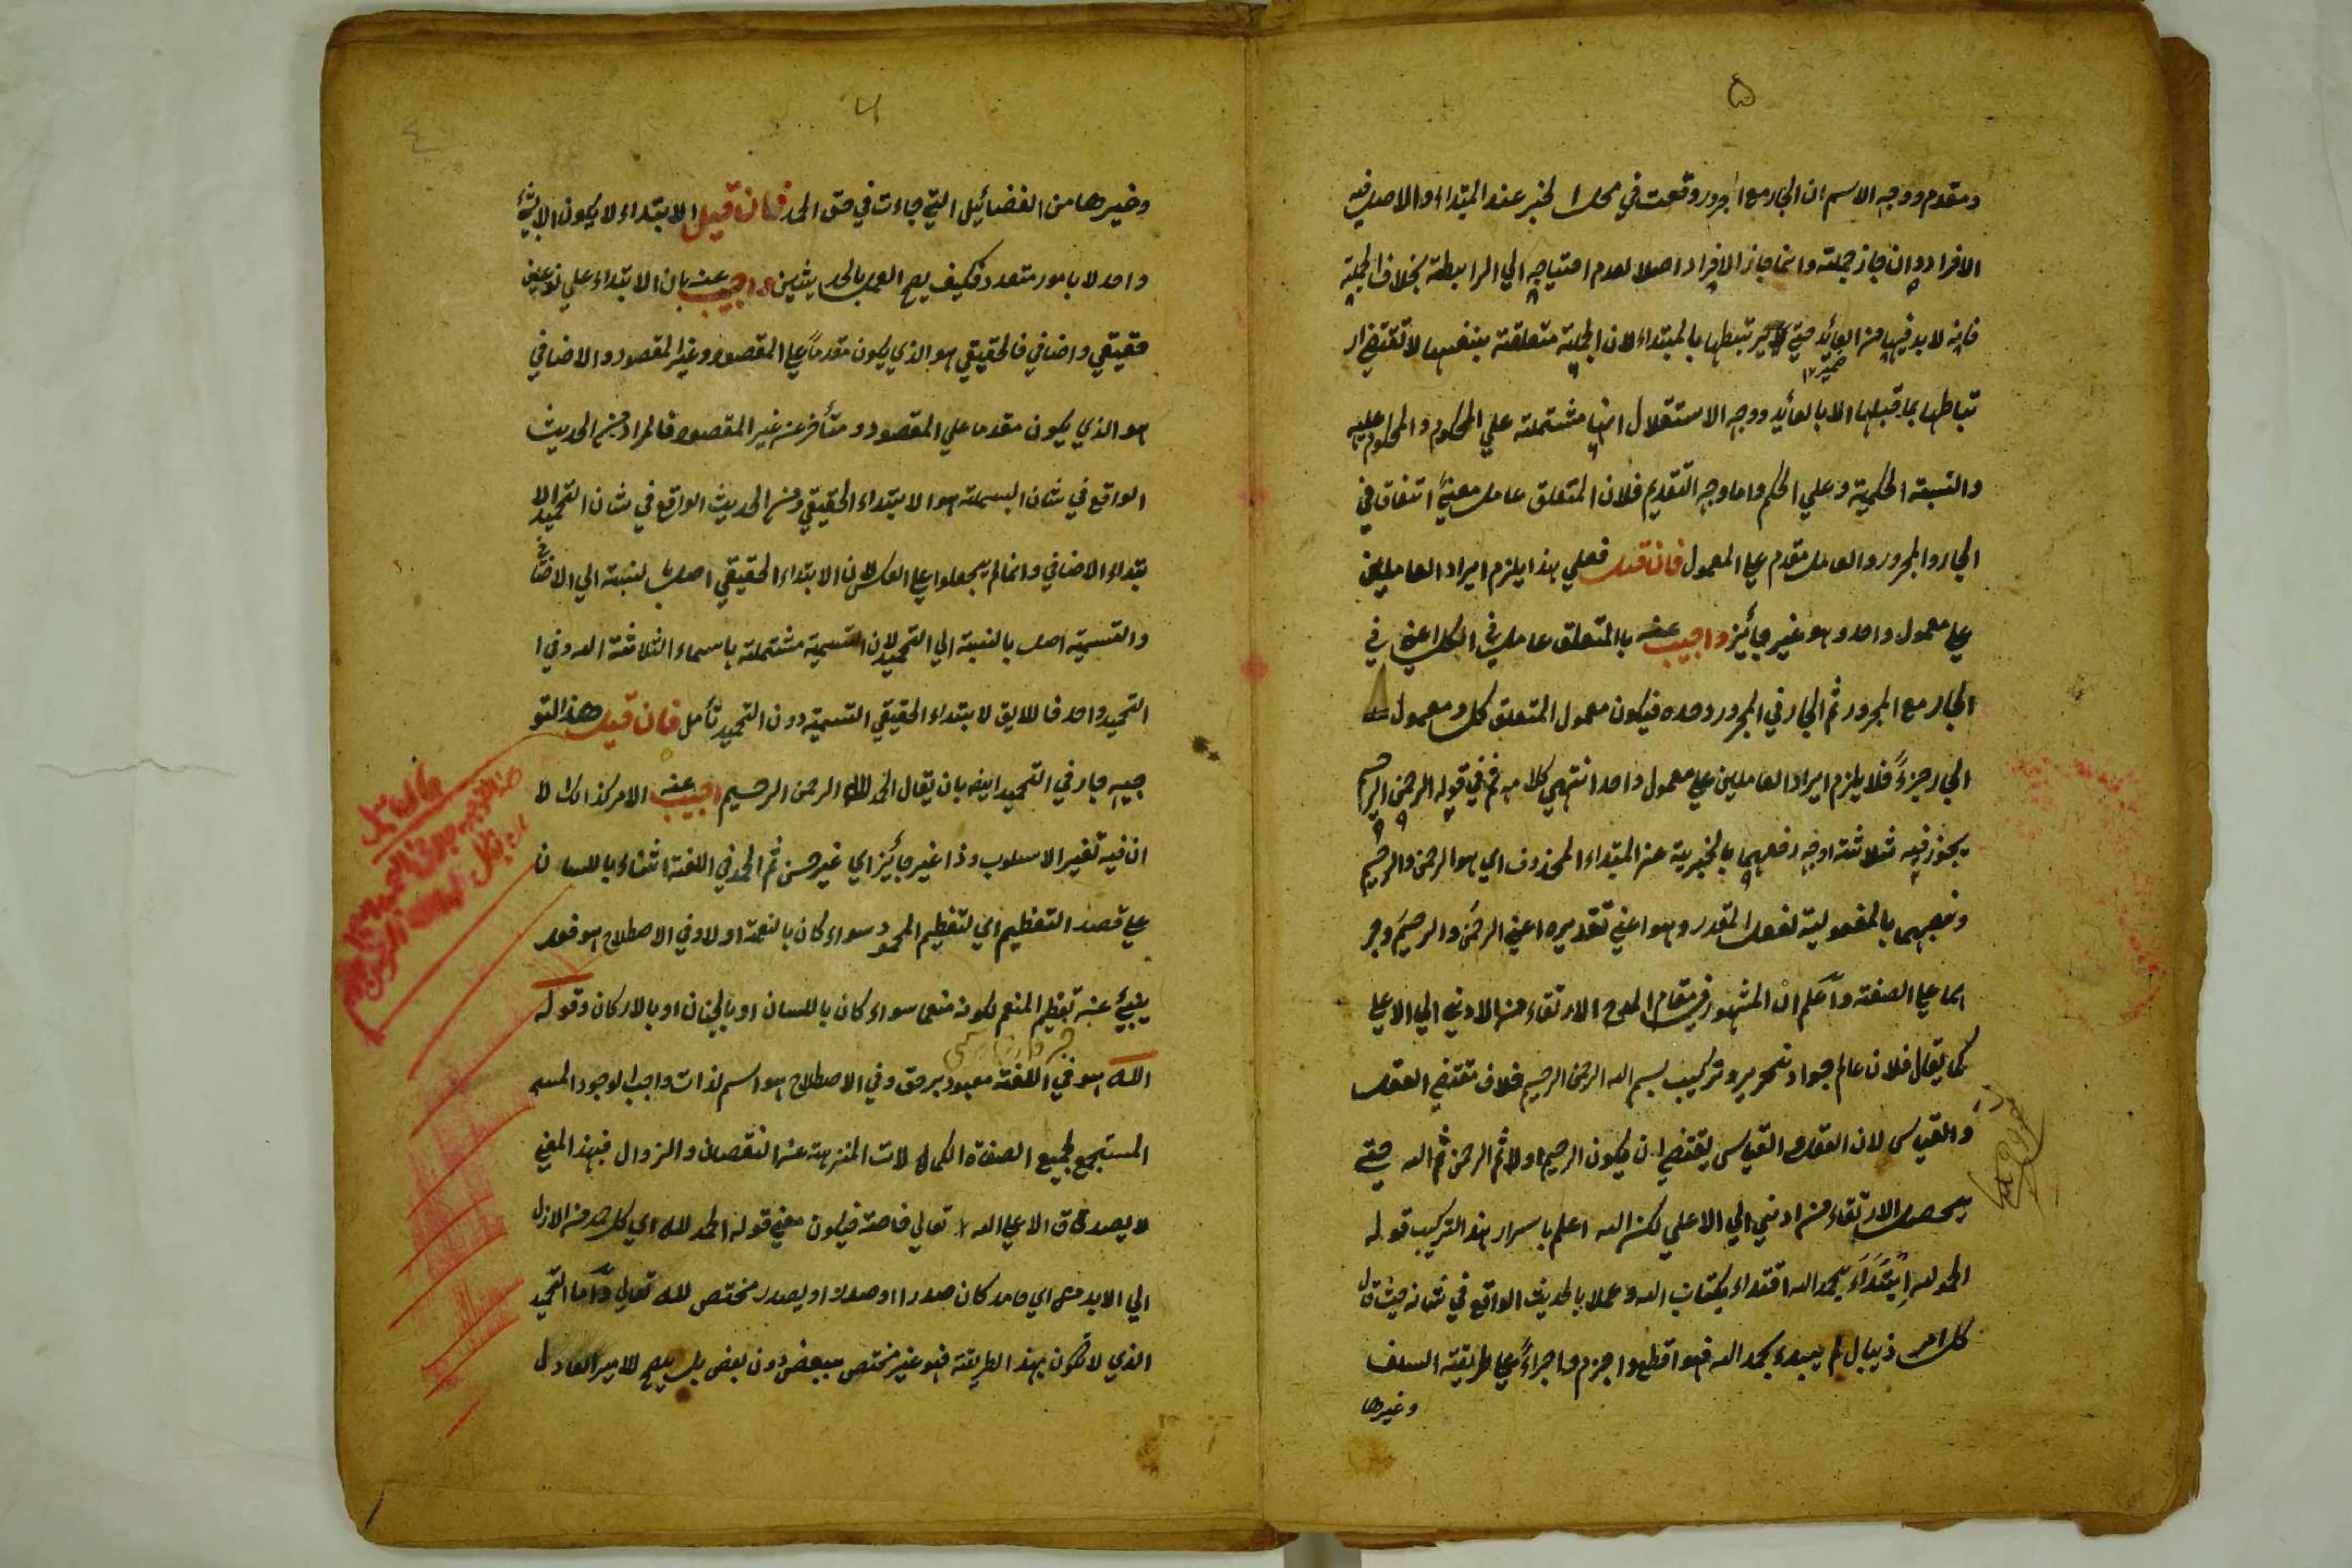 ۵
ومقدم ووجه الاسم ان الجار مع المجرور وقعت في محل الخبر عند المبتداء والاصل فيه
الافراد وان جاز جملته وانما جاز الافراد اصلا لعدم احتياجه الي الرابطة بخلاف الجملة
فانه لا بد فيها من العائد حتي يرتبطها بالمبتداء لان الجملة متعلقة بنفسها لا تقتضي ار
ضمير ١٢
تباطها بما قبلها الا بالعائد ووجه الاستقلال انها مشتملة علي المحكوم والمحكوم عليه
والنسبة الحكمية وعلي الحكم واما وجه التقديم فلان المتعلق عامل معنيً اتفاق في
الجار والمجرور والعامل مقدم علي المعمول فان قيل فعلي هذا يلزم ايراد العاملين
علي معمول واحد وهو غير جائز واجيب عنه بالمتعلق عامل في الكل اعني في
الجار مع المجرور ثم الجار في المجرور وحده فيكون معمول المتعلق كل ومعمول
الجار جزءً فلا يلزم ايراد العاملين علي معمول واحد انتهي كلامه ثم في قوله الرحمن الرحيم
يجوز فيه ثلاثة اوجه رفعهما بالخبرية عن المبتداء المحذوف اي هو الرحمن والرحيم
ونصبهما بالمفعولية لفعل المقدر وهو اعني تقديره اعني الرحمنَ والرحيمَ وجر
هما علي الصفة واَعلم انْ المشهور في مقام المدح الارتقاء من الادني الي الاعلي
كما يقال فلان عالم جواد نحرير وتركيب بسم الله الرحمن الرحيم خلاف مقتضي العقل
والقياس لان العقل والقياس يقتضي ان يكون الرحيم اولا ثم الرحمن ثم الله حتي
يحصل الارتقاء من ادني الي الاعلي لكن الله اعلم باسرار هذا التركيب قوله
الحمد لله اِبْتَدَاَء بحمد الله اقتداء بكتاب الله وعملا بالحديث الواقع في شانه حيث قال
كل امر ذي بال لم يبدء بحمد الله فهو اقطع واجزم واجراءً علي طريقة السلف
وغيرها
٦
٤
وغيرها من الفضائيل التي جاءت في حق الحمد فان قيل الابتداء لا يكون الا بشئ
واحد لا بامور متعدد فكيف يصح العمل بالحديثين واجيب عنه بان الابتداء علي نوعين
حقيقي واضافي فالحقيقي هو الذي يكون مقدماً علي المقصود وغير المقصود والاضافي
هو الذي يكون مقدما علي المقصود ومتأخر عن غير المقصود فالمراد من الحديث
الواقع في شان البسملة هو الابتداء الحقيقي ومن الحديث الواقع في شان التحميد الا
بتداء الاضافي وانما لم يجعلوا علي العكس لان الابتداء الحقيقي اصل بنسبة الي الاضافي
والتسمية اصل بالنسبة الي التحميد لان التسمية مشتملة باسماء الثلاثة الله وفي ا
التحميد واحد فاللايق لابتداء الحقيقي التسمية دون التحميد تأمل فان قيل هذا التو
جيه جار في التحميد ايضه بان يقال الحمد لله الرحمن الرحيم اجيب عنه الامر كذالك لا
ان فيه تغير الاسلوب وذا غير جائز اي غير حسن ثم الحمد في اللغة الثناء باللسان
علي قصد التعظيم اي لتعظيم المحمود سواء كان بالنعمة اولا وفي الاصطلاح هو فعل
ينبئ عن تعظيم المنعم لكونه منعما سواء كان باللسان او بالجنان او بالاركان وقوله
الله هو في اللغة معبود برحق وفي الاصطلاح هو اسم لذات واجب الوجود المسم
المستجمع لجميع الصفاة الكمالات المنزهة عن النقصان والزوال فبهذا المعني
لا يصدقاق الا علي الله تعالي خاصة فيكون معني قوله الحمد لله اي كل حمد من الازل
الي الابد من اي حامد كان صدرا او صدر او يصدر مختص لله تعالي واَما التحميد
الذي لا تكون بهذا الطريقة فهو غير مختص ببعض دون بعض بل يصح للامير العادل
فان قيل
هذا التوجيه جار في التحميد ايضا